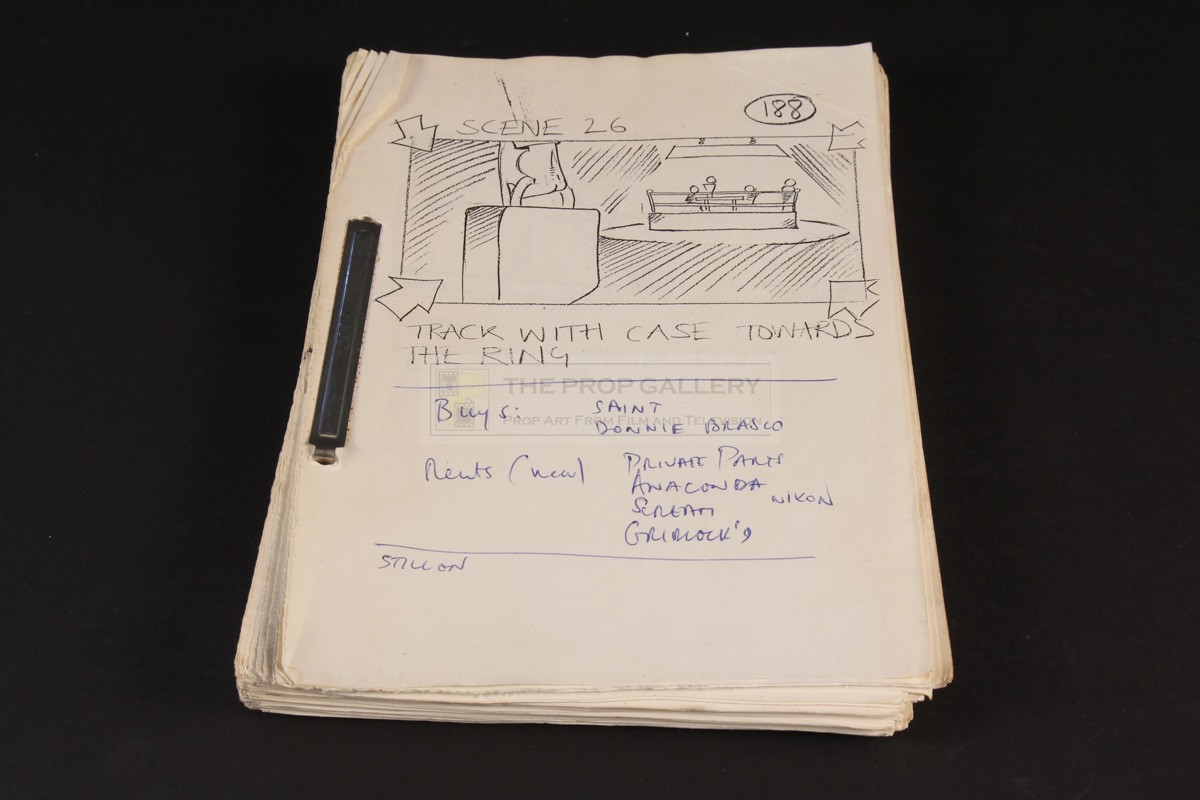 188
SCENE 26
TRACK WITH CASE TOWARDS
THE RING
THE PROP GALLERY
PROP ART FROM FILM AND TELEVISION
Buys: SAINT
DONNIE BRASCO
Rents (new) PRIVATE PARTS
ANACONDA
NIKON
SCREAM
STILL ON